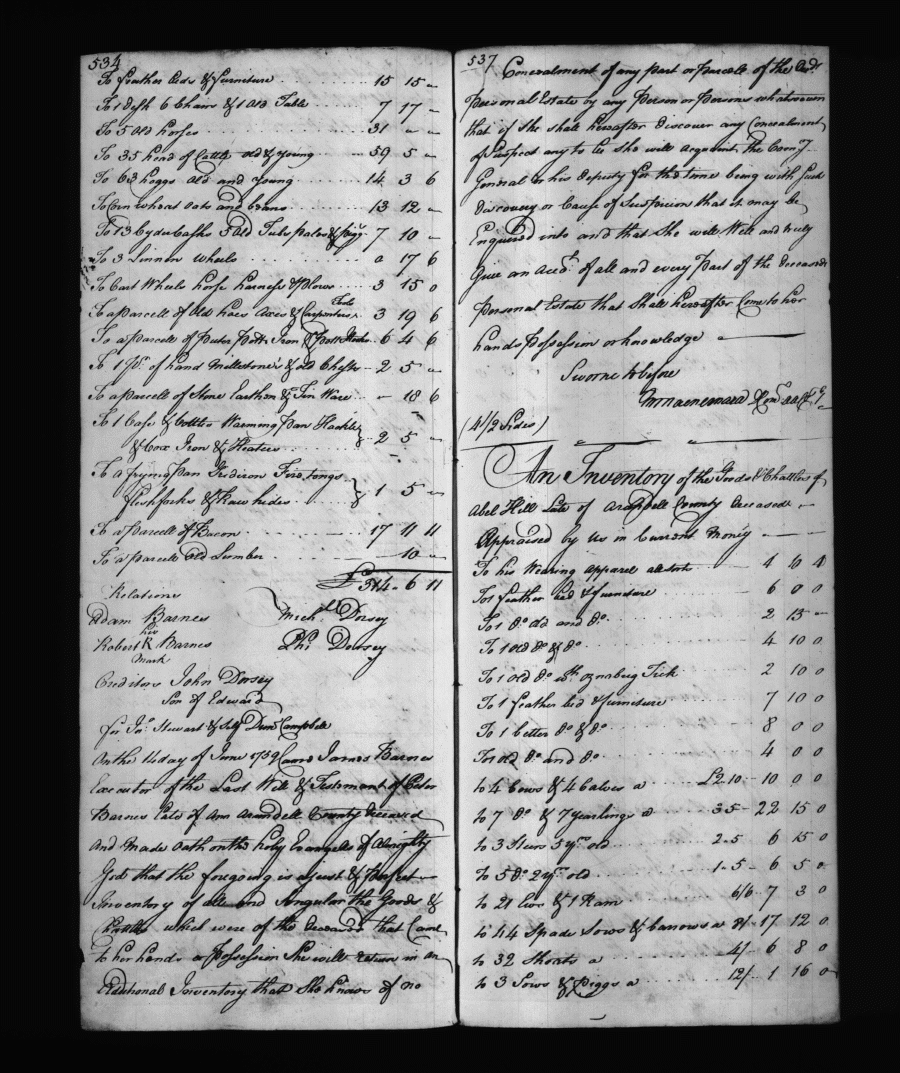 534
To feather beds & furniture 15 15 "
To 1 Desk 6 Chairs & 1 old Table 7 17 "
To 5 old horses 31 " "
To 35 head of Cattle old & young 59 5 "
To 63 hoggs old and young 14 3 6
To Corn wheat oats and beans 13 12 "
To 13 Cyder Casks 5 old Tubs pales & 7 10 "
To 3 Linnen wheels 0 17 6
To Cart Wheels horse harness & plows 3 15 0
To a parcell of old hoes Axes & Carpenters Tools 3 19 6
To a parcell of Puter Potts Iron & pott hooks 6 4 6
To 1 pr. of hand Millstones & old Chests 2 5 "
To a parcell of Stone Earthen & Tin Ware " 18 6
To 1 Case & bottles Warming pan Hackle
& box Iron & Heaters 2 5 "
To a frying pan Gridiron Fire tongs
flesh forks & Raw hides 1 5 "
To a parcell of Bacon 17 11 11
To a parcell old Lumber 10 "
£314 6 11
Relations
Adam Barnes Michl. Dorsey
Robert R Barnes Phi Dorsey
his
Mark
Creditors John Dorsey
Son of Edward
for Jno. Stewart & Self Dun Campbell
On the day of June 1739 Came James Barnes
Executor of the Last Will & Testament of Peter
Barnes late of Ann Arundell County Deceased
And Made Oath on the holy Evangels of Almighty
God that the foregoing is a just & Perfect
Inventory of all and Singular the Goods &
Chattles which were of the Deceaseds that Came
to her hands or Possession She will return in an
Additional Inventory that She knows of no
537
Concealment of any part or parcell of the Decd.
personal Estate by any Person or Persons whatsoever
that if She shall hereafter discover any Concealment
or Suspect any to be She will acquaint the Comry.
General or his deputy for the time being with such
discovery or Cause of Suspicion that it may be
Enquired into and that She will Well and truly
Give an Acct. of all and every Part of the deceaseds
personal Estate that Shall hereafter Come to her
hands Possession or knowledge
Sworne to before
(4 1/2 Sides)
An Inventory of the Goods & Chattles of
Abel Hill Late of Arundell County deceased
Appraised by us in Current Money
To his Wearing apparel all sorts 4 10 4
To 1 feather bed & furniture 6 0 0
To 1 Do. old and Do. 2 15 "
To 1 old Do & Do. 4 10 0
To 1 old Do wth. oznabrig Tick 2 10 0
To 1 feather bed & furniture 7 10 0
To 1 better Do & Do. 8 0 0
To 1 old Do. and Do. 4 0 0
to 4 Cows & 4 Calves a £2.10 10 0 0
to 7 Do. & 7 yearlings a 35 22 15 0
to 3 Steers 5 yrs old 2.5 6 15 0
to 5 Do. 2 yrs. old 1.5 6 5 0
to 21 Ews & 1 Ram 6/6 7 3 0
to 44 Spade Sows & barrows a 8/ 17 12 0
to 32 Shoats a 4/ 6 8 0
to 3 Sows & Piggs a 12/ 1 16 0